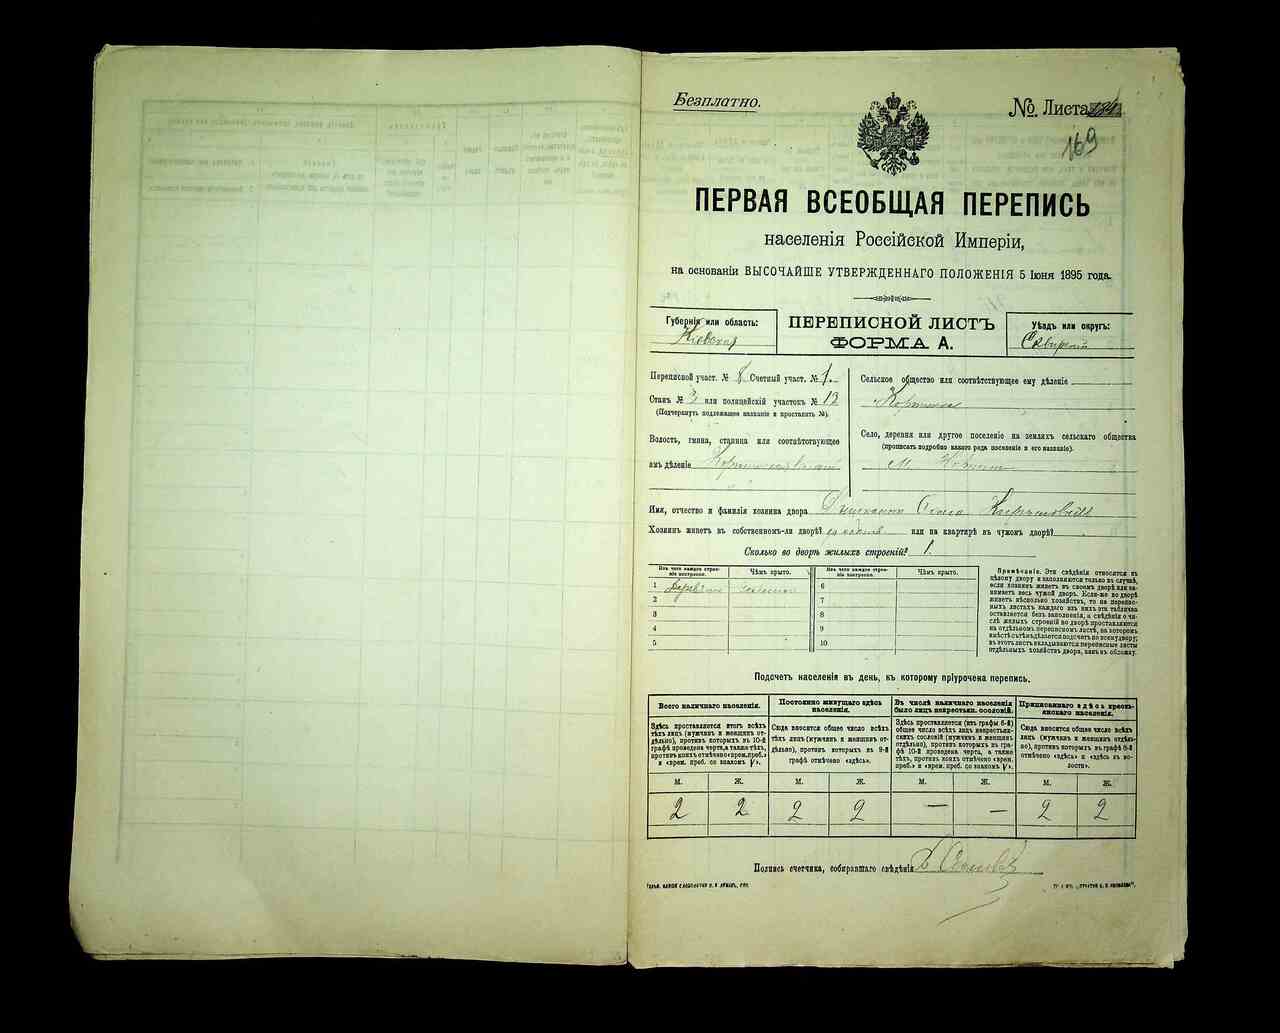 Безплатно.
№ Листа
169
ПЕРВАЯ ВСЕОБЩАЯ ПЕРЕПИСЬ
населенія Россійской Имперіи,
на основаніи ВЫСОЧАЙШЕ УТВЕРЖДЕННАГО ПОЛОЖЕНІЯ 5 Іюня 1895 года.
Губернія или область:
Кіевская
ПЕРЕПИСНОЙ ЛИСТЪ
ФОРМА А.
Уѣздъ или округъ:
Сквирскій
Переписной участ. № 8 Счетный участ. № 1.
Станъ № 3 или полицейскій участокъ № 13
(Подчеркнуть подлежащее названіе и проставить №).
Волость, гмина, станица или соотвѣтствующее
имъ дѣленіе
Сельское общество или соотвѣтствующее ему дѣленіе
Село, деревня или другое поселеніе на земляхъ сельскаго общества
(прописать подробно какого рода поселеніе и его названіе).
М.
Имя, отчество и фамилія хозяина двора
Хозяинъ живетъ въ собственномъ-ли дворѣ? или на квартирѣ въ чужомъ дворѣ?
Сколько во дворѣ жилыхъ строеній? 1.
Изъ чего каждое строеніе построено.
Чѣмъ крыто.
Изъ чего каждое строеніе построено.
Чѣмъ крыто.
1
2
3
4
5
6
7
8
9
10
Примѣчаніе. Эти свѣдѣнія относятся къ
цѣлому двору и заполняются только въ случаѣ,
если хозяинъ живетъ въ своемъ дворѣ или занимаетъ
весь чужой дворъ. Если-же во дворѣ
живетъ нѣсколько хозяйствъ, то на переписныхъ
листахъ каждаго изъ нихъ эта табличка
оставляется безъ заполненія, а свѣдѣнія о числѣ
жилыхъ строеній во дворѣ проставляются
на отдѣльномъ переписномъ листѣ, на которомъ
вмѣстѣ съ тѣмъ дѣлается подсчетъ по всему двору;
въ этотъ листъ вкладываются переписные листы
отдѣльныхъ хозяйствъ двора, какъ въ обложку.
Подсчетъ населенія въ день, къ которому пріурочена перепись.
Всего наличнаго населенія.
Здѣсь проставляется итогъ всѣхъ
тѣхъ лицъ (мужчинъ и женщинъ отдѣльно),
противъ которыхъ въ 10-й
графѣ проведена черта, а также тѣхъ,
противъ коихъ отмѣчено «врем. преб.»
и «врем. преб. со знакомъ V».
Постоянно живущаго здѣсь
населенія.
Сюда вносится общее число всѣхъ
тѣхъ лицъ (мужчинъ и женщинъ отдѣльно),
противъ которыхъ въ 9-й
графѣ отмѣчено «здѣсь».
Въ числѣ наличнаго населенія
было лицъ некрестьян. сословій.
Здѣсь проставляется (изъ графы 6-й)
общее число всѣхъ лицъ некрестьянскихъ
сословій (мужчинъ и женщинъ
отдѣльно), противъ которыхъ въ графѣ
10-й проведена черта, а также
тѣхъ, противъ коихъ отмѣчено «врем.
преб.» и «врем. преб. со знакомъ V».
Приписаннаго здѣсь крестьянскаго
населенія.
Сюда вносится общее число всѣхъ
лицъ (мужчинъ и женщинъ отдѣльно),
противъ которыхъ въ графѣ 8-й
отмѣчено «здѣсь» и «здѣсь въ волости».
М. Ж. М. Ж. М. Ж. М. Ж.
2 2 2 2 — — 2 2
Подпись счетчика, собиравшаго свѣдѣнія